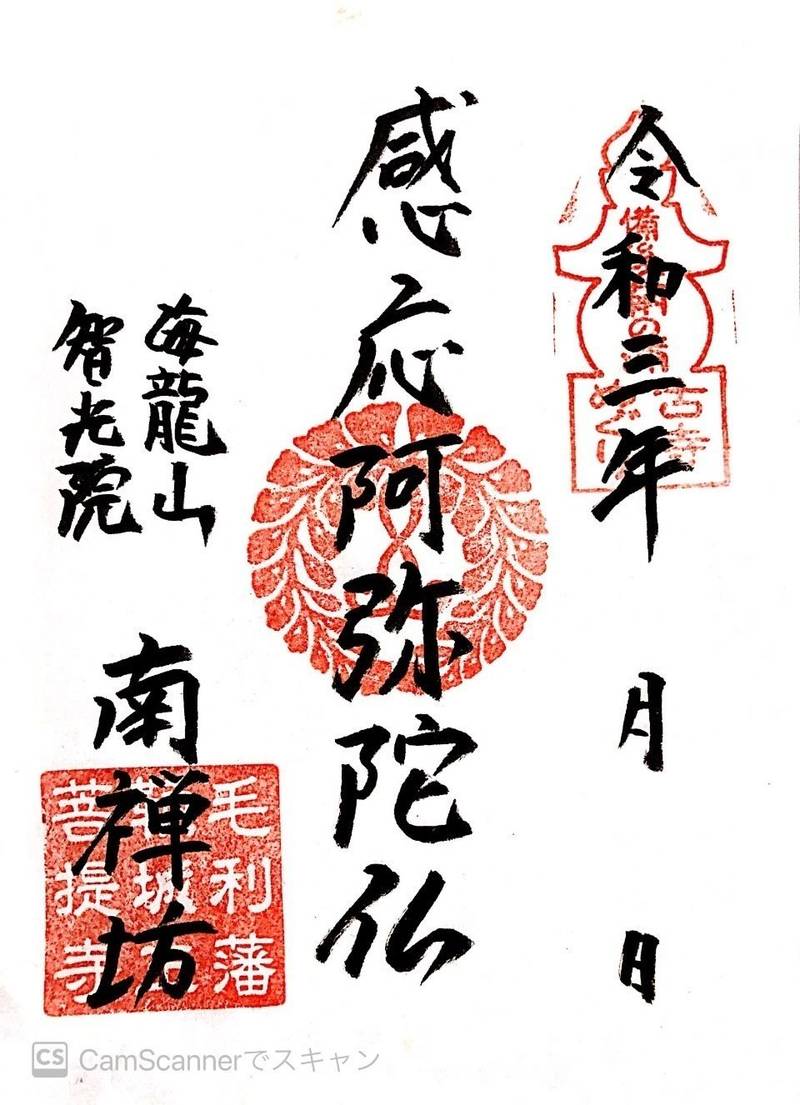 令和三年 月 日
感応阿弥陀仏
海龍山
智光院
南禅坊
古寺
めぐり
毛利藩
菩提寺
CS CamScannerでスキャン